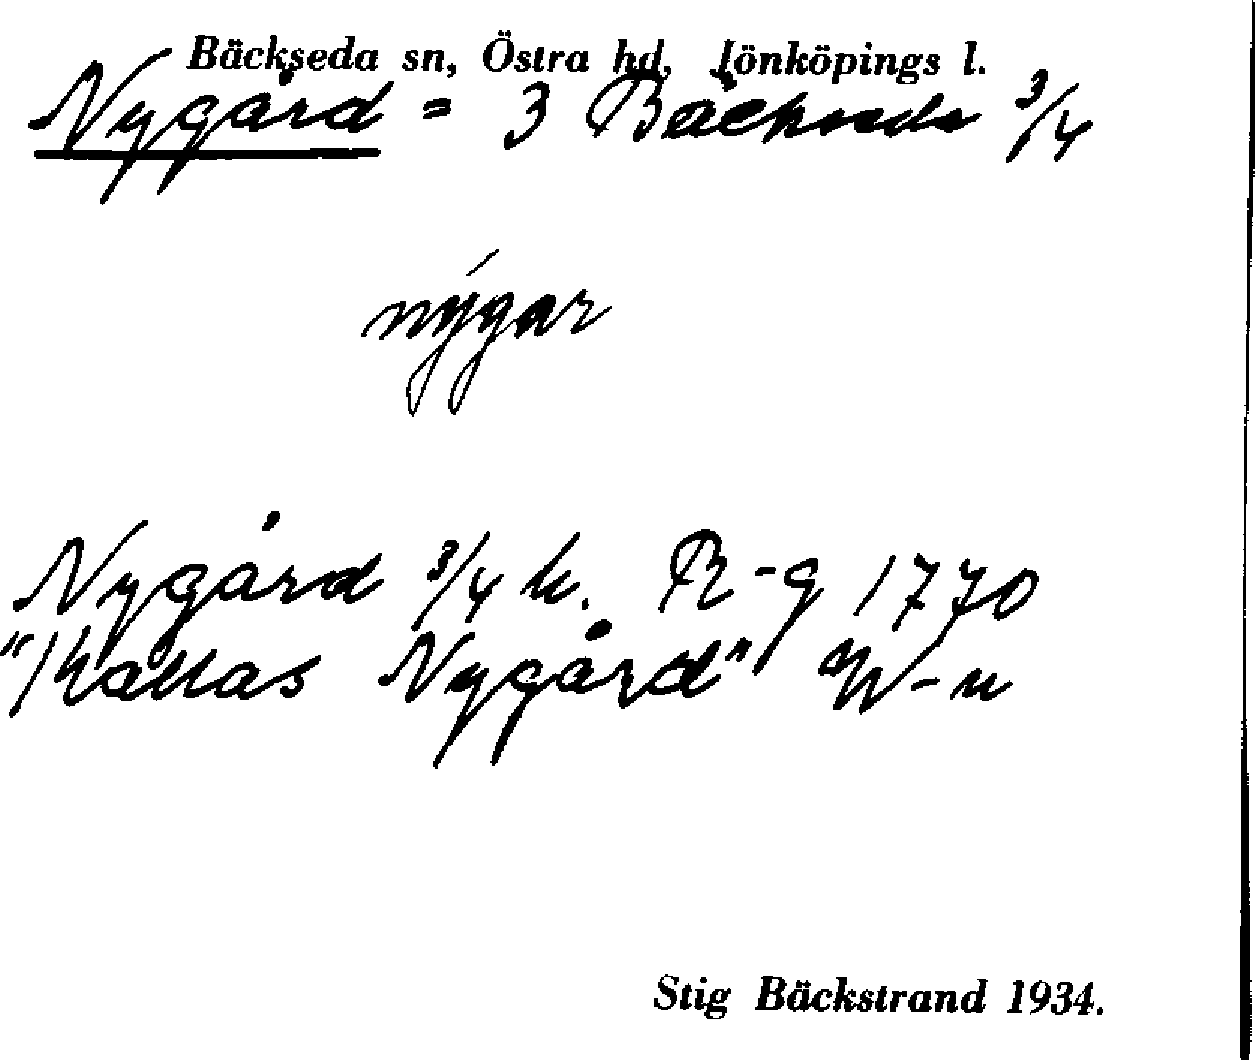 Bäckseda sn, Östra hd, Jönköpings l.
Nygård = 3 Bäckseda 3/4
nýgar
Nygård 3/4 h. R-g 1770
"Kallas Nygård" W-n
Stig Bäckstrand 1934.